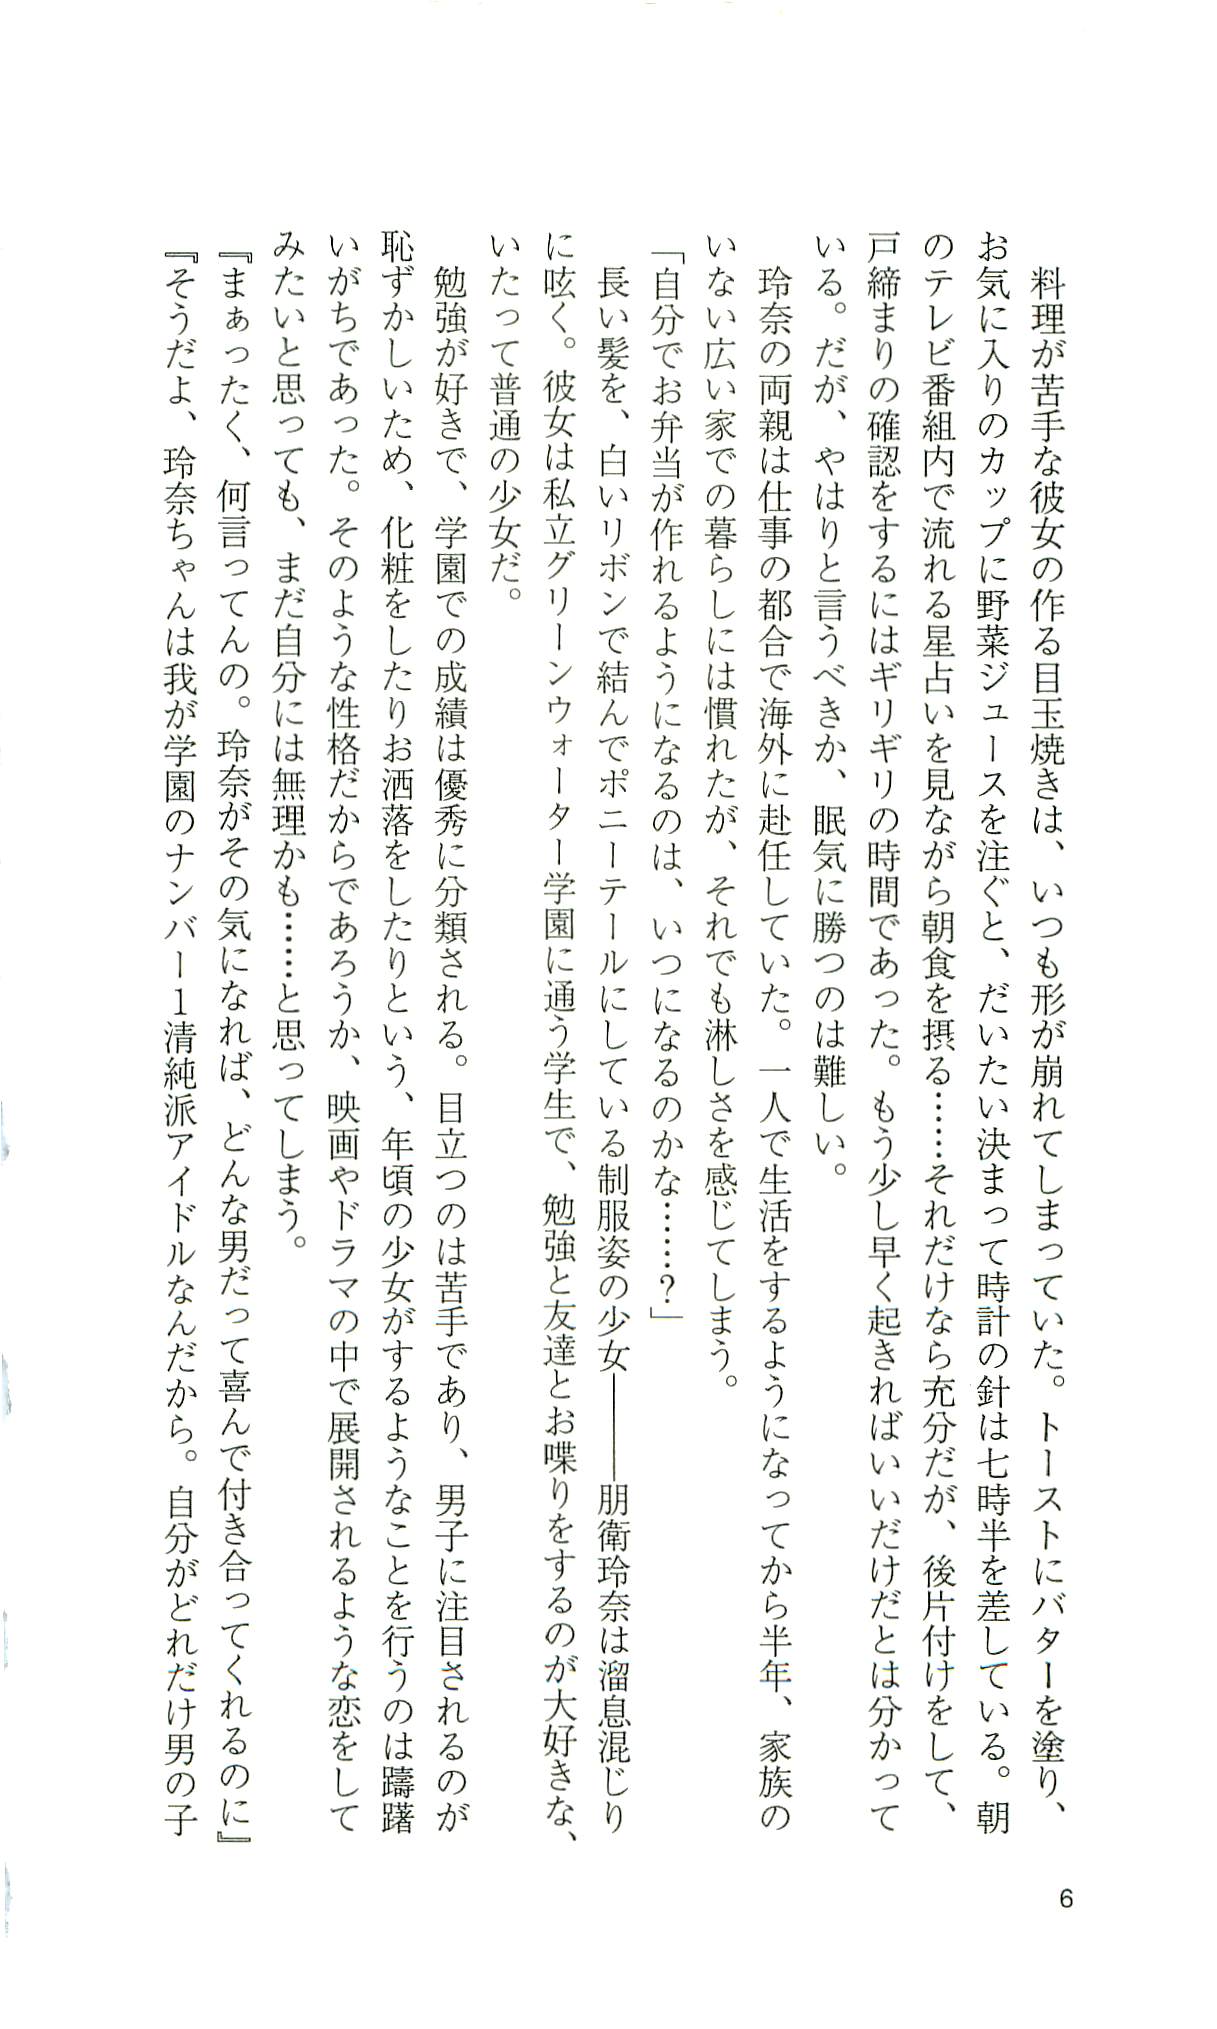 料理が苦手な彼女の作る目玉焼きは、いつも形が崩れてしまっていた。トーストにバターを塗り、
お気に入りのカップに野菜ジュースを注ぐと、だいたい決まって時計の針は七時半を差している。朝
のテレビ番組内で流れる星占いを見ながら朝食を摂る……それだけなら充分だが、後片付けをして、
戸締まりの確認をするにはギリギリの時間であった。もう少し早く起きればいいだけだとは分かって
いる。だが、やはりと言うべきか、眠気に勝つのは難しい。
玲奈の両親は仕事の都合で海外に赴任していた。一人で生活をするようになってから半年、家族の
いない広い家での暮らしには慣れたが、それでも淋しさを感じてしまう。
「自分でお弁当が作れるようになるのは、いつになるのかな……？」
長い髪を、白いリボンで結んでポニーテールにしている制服姿の少女――朋衛玲奈は溜息混じり
に呟く。彼女は私立グリーンウォーター学園に通う学生で、勉強と友達とお喋りをするのが大好きな、
いたって普通の少女だ。
勉強が好きで、学園での成績は優秀に分類される。目立つのは苦手であり、男子に注目されるのが
恥ずかしいため、化粧をしたりお洒落をしたりという、年頃の少女がするようなことを行うのは躊躇
いがちであった。そのような性格だからであろうか、映画やドラマの中で展開されるような恋をして
みたいと思っても、まだ自分には無理かも……と思ってしまう。
『まぁったく、何言ってんの。玲奈がその気になれば、どんな男だって喜んで付き合ってくれるのに』
『そうだよ、玲奈ちゃんは我が学園のナンバー１清純派アイドルなんだから。自分がどれだけ男の子
6